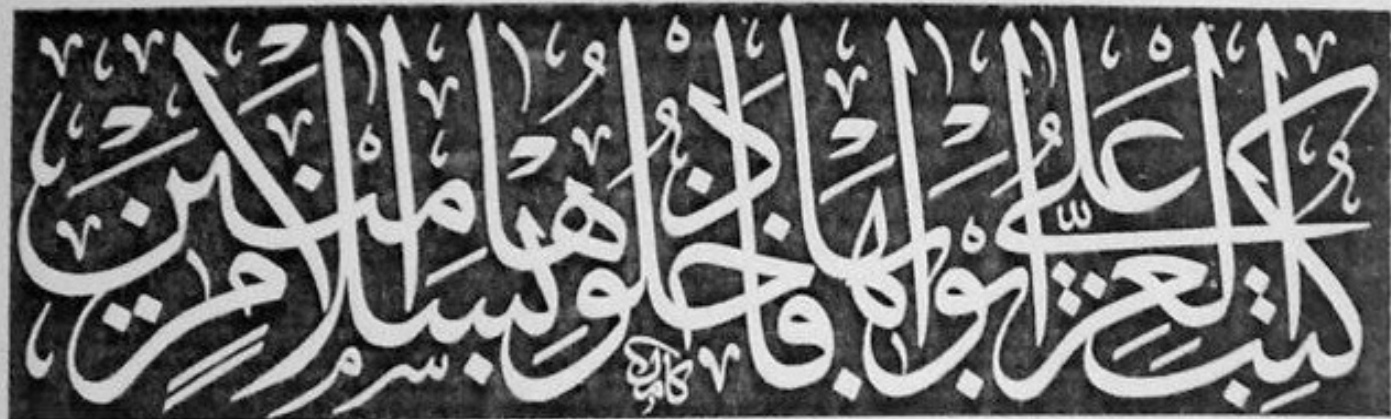 كتب العز على أبوابها فادخلوها بسلام آمنين